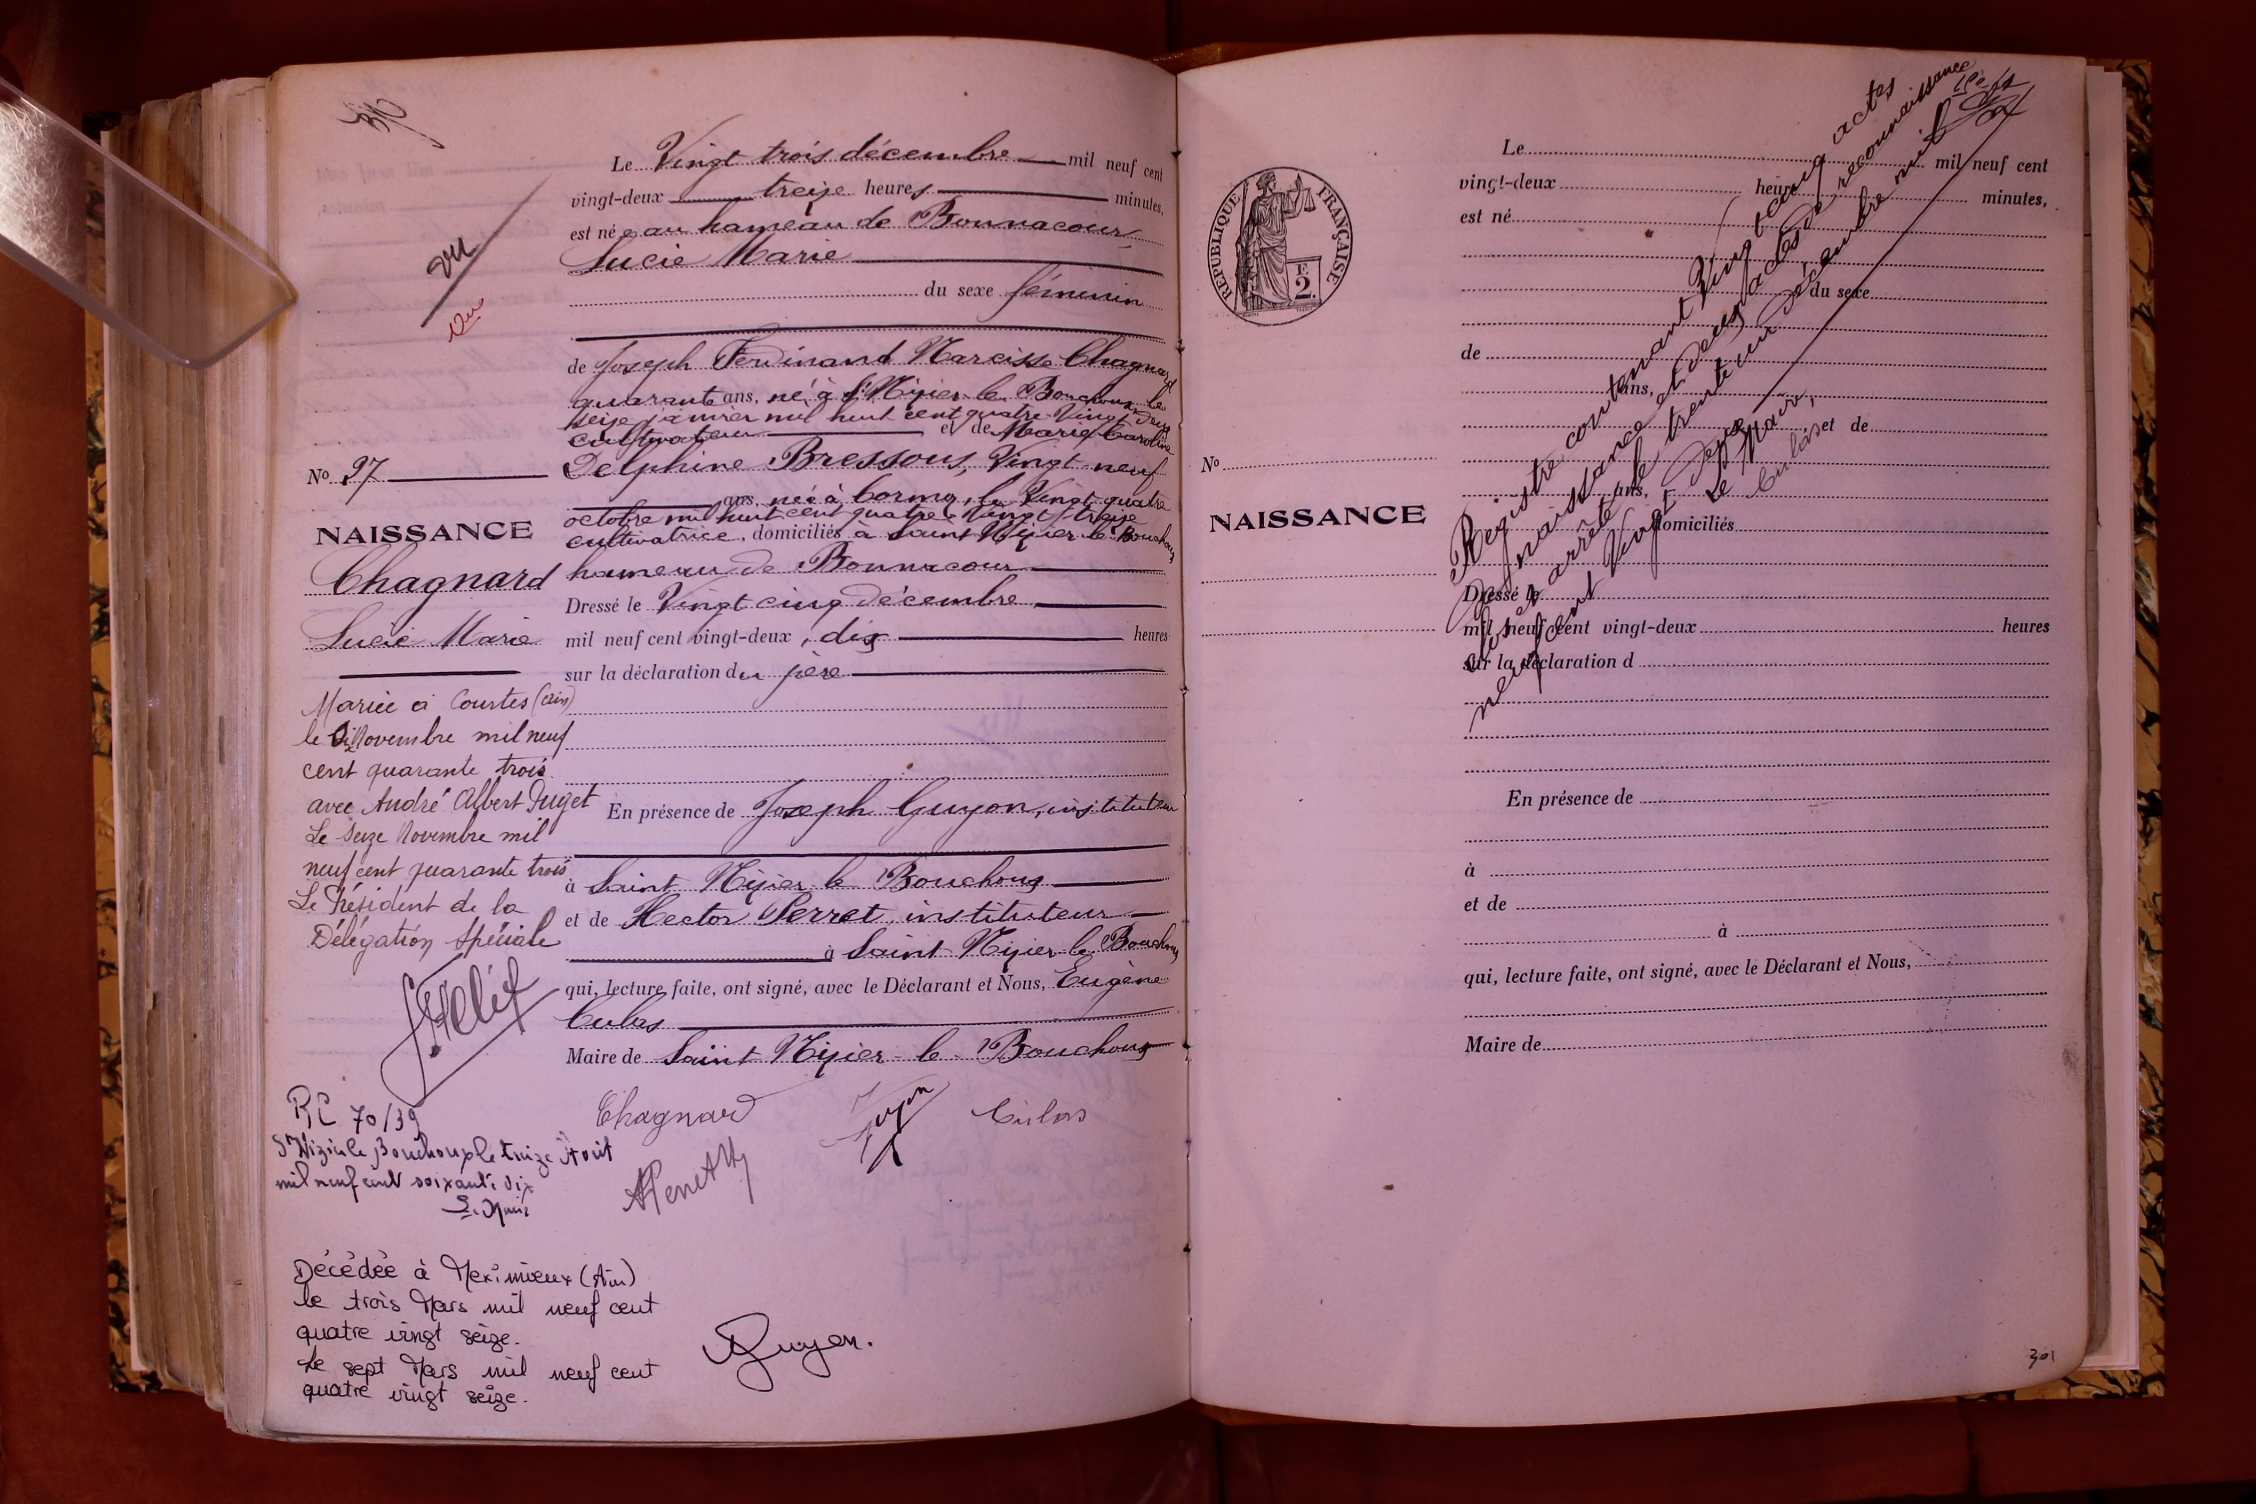 vu
Vu
Le Vingt trois décembre mil neuf cent
vingt-deux treize heures minutes,
est née au hameau de Bonnacour
Lucie Marie
du sexe féminin
de Joseph Ferdinand Narcisse Chagnard
quarante ans, né à St Nizier le Bouchoux le
seize janvier mil huit cent quatre Vingt deux
cultivateur et de Marie Caroline
Delphine Bressous, Vingt neuf
ans, née à Cormoz, le Vingt quatre
octobre mil huit cent quatre Vingt treize
cultivatrice, domiciliés à Saint Nizier le Bouchoux
hameau de Bonnacour
Dressé le Vingt cinq décembre
mil neuf cent vingt-deux, dix heures
sur la déclaration du père
En présence de Joseph Guyon, instituteur
à Saint Nizier le Bouchoux
et de Hector Perret, instituteur
à Saint Nizier le Bouchoux
qui, lecture faite, ont signé, avec le Déclarant et Nous, Eugène
Culas
Maire de Saint Nizier le Bouchoux
Chagnard Guyon Culas
No 27
NAISSANCE
Chagnard
Lucie Marie
Mariée à Courtes (Ain)
le Novembre mil neuf
cent quarante trois
avec André Albert Puget
Le Seize Novembre mil
neuf cent quarante trois
Le Président de la
Délégation Spéciale
RC 70/39
St Nizier le Bouchoux le treize Août
mil neuf cent soixante dix
Le Maire
Décédée à Meximieux (Ain)
le trois Mars mil neuf cent
quatre vingt seize.
Le sept Mars mil neuf cent
quatre vingt seize.
Guyon.
RÉPUBLIQUE FRANÇAISE
F.
2
No
NAISSANCE
Le mil neuf cent
vingt-deux heure minutes,
est né
du sexe
de
ans,
et de
ans,
domiciliés
Dressé le
mil neuf cent vingt-deux heures
sur la déclaration d
En présence de
à
et de
à
qui, lecture faite, ont signé, avec le Déclarant et Nous,
Maire de
Registre contenant Vingt cinq actes
de naissance et deux actes de reconnaissance
clos et arrêté le trente un Décembre mil
neuf cent Vingt Deux
Le Maire,
Culas
301